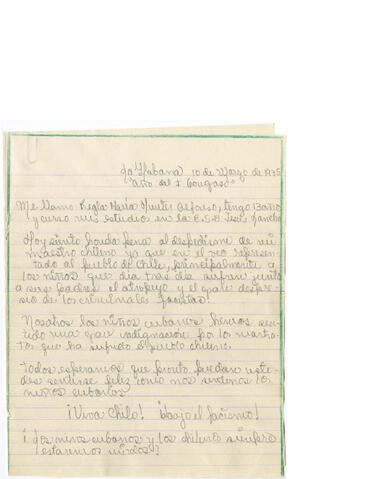 La Habana 10 de Marzo de 1975
"Año del I Congreso"
Me llamo Regla María Montes Alfonso, tengo 13 años
y curso mis estudios en la E.S.B. José
Hoy siento honda pena al despedirme de mi
maestro chileno ya que en el veo represen-
tado al pueblo de Chile, principalmente a
los niños que día tras día sufren junto
a sus padres el atropeyo y el gran despre-
cio de los criminales facistas.
Nosotros los niños cubanos hemos sen-
tido una gran indignación por los
que ha sufrido el pueblo chileno.
Todos esperamos que pronto puedan uste-
des sentirse feliz como nos sentimos los
niños cubanos
¡Viva Chile! ¡abajo el facismo!
¡Los niños cubanos y los chilenos siempre
estaremos unidos!